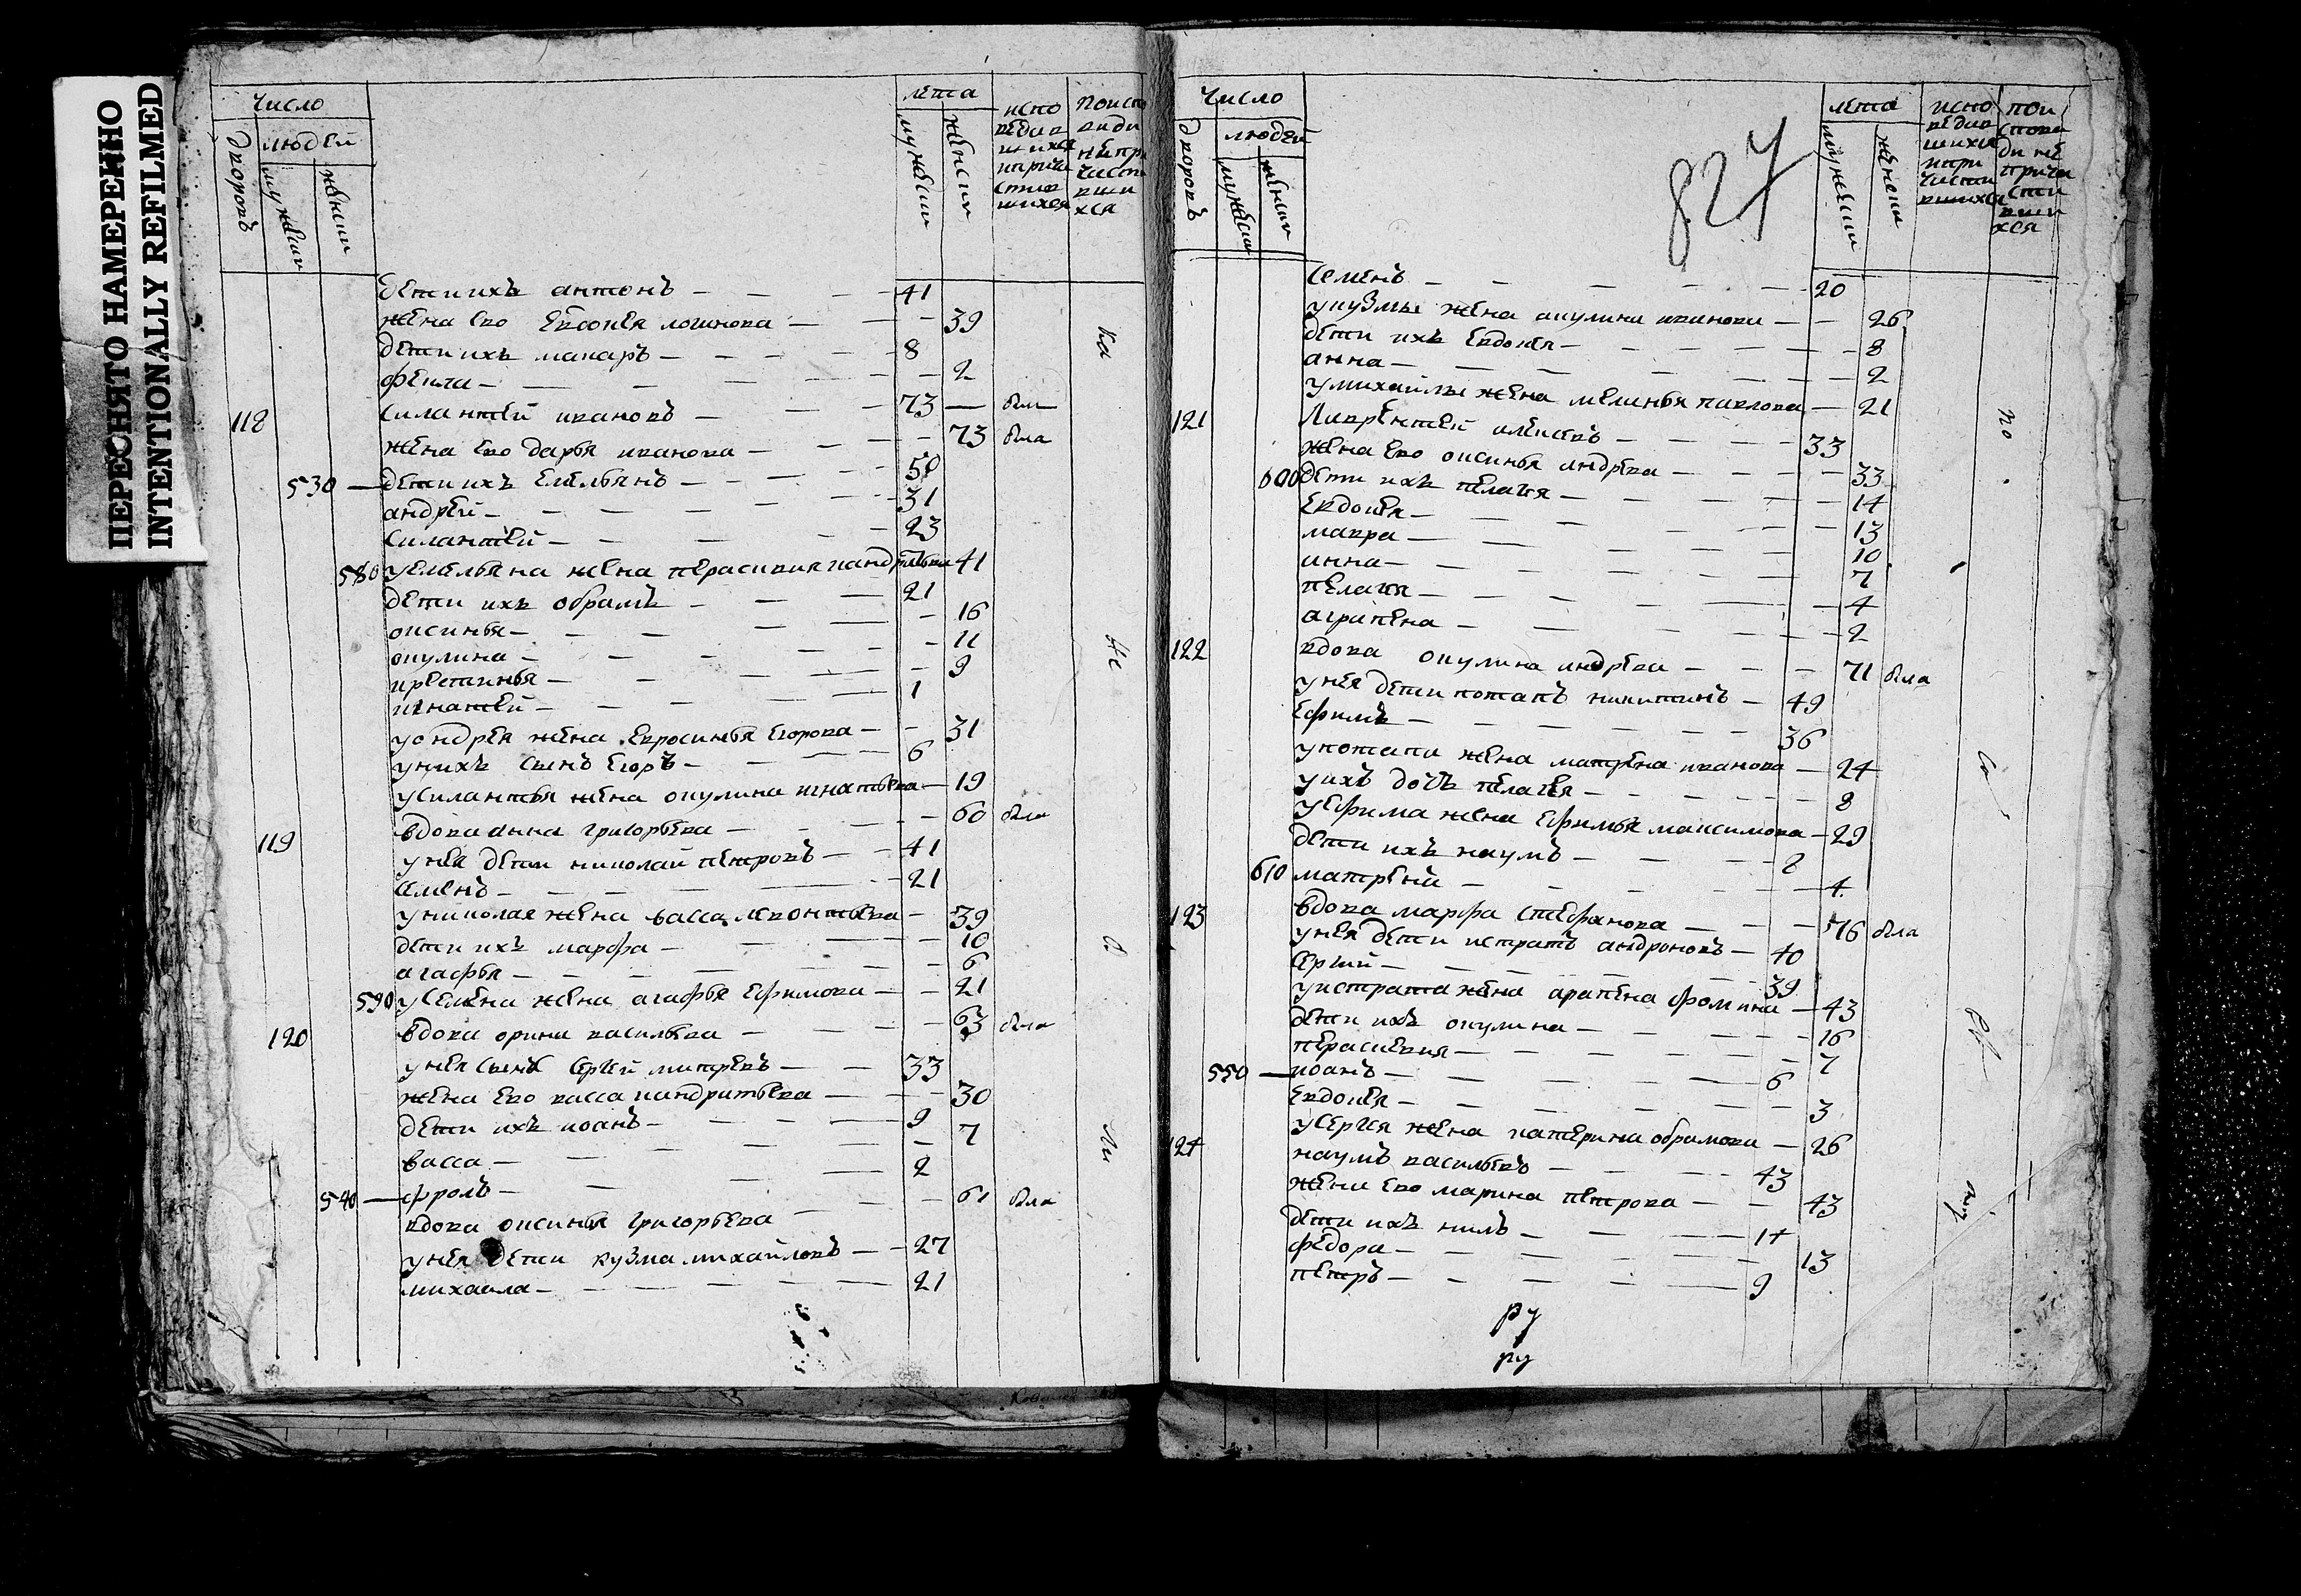 ПЕРЕСНЯТО НАМЕРЕННО
INTENTIONALLY REFILMED
Число
дворовъ
людей
мужеска
женска
лета
мужеска
женска
испо
ведав
шихся
причa
стив
шихся
поиспо
веди
непри
части
вши
хся
дети ихъ антонъ — 41
жена ево Евдокея логинова — 39
дети ихъ макаръ — 8
фекла — 2
118 силантей ивановъ — 73 — был
жена ево дарья иванова — 73 была
530 — дети ихъ Емельянъ — 58
андрей — 31
силантей — 23
580 уемельяна жена перасковия кандратьева 41
дети ихъ обрамъ — 21
оксинья — 16
окулина — 11
иркстинья — 9
игнатей — 1
уондрея жена Евросинья Егорова — 31
унихъ сынъ Егоръ — 6
усилантья жена окулина игнатьева — 19
119 вдова анна григорьева — 60 была
унея дети николай петровъ — 41
семенъ — 21
униколая жена васса леонтьева — 39
дети ихъ марфа — 10
агафья — 6
590 усемена жена агафья Ефимова — 21
120 вдова орина васильева — 63 была
унея сынъ сергей митревъ — 33
жена ево васса кандратьева — 30
дети ихъ иоанъ — 9
васса — 7
540 — фролъ — 2
вдова оксинья григорьева — 61 была
унея дети кузма михайловъ — 27
михаила — 21
ка
ли
Число
дворовъ
людей
мужеска
женска
827
лета
мужеска
женска
испо
ведав
шихся
при
части
вшихся
пои
спове
ди не
прича
сти
вши
хся
семенъ — 20
укузмы жена окулина иванова — 26
дети ихъ Евдокея — 8
анна — 2
умихайлы жена меланья павлова — 21
121 Лаврентей олексевъ — 33
жена ево оксинья андрева — 33
600 дети ихъ пелагея — 14
Евдокея — 13
мавра — 10
анна — 7
пелагея — 4
агрипена — 2
122 вдова окулина андрева — 71 была
унея дети потапъ никитинъ — 49
Ефимъ — 36
употапа жена матрена иванова — 24
уихъ дочь пелагея — 8
уЕфима жена Ефимья максимова — 29
дети ихъ наумъ — 8
610 матрена — 4
123 вдова марфа стефанова — 76 была
унея дети истратъ андроновъ — 40
сергий — 39
уистрата жена арапена фомина — 43
дети ихъ окулина — 16
перасковия — 7
550 — иоанъ — 6
Евдокея — 3
усергея жена катерина обрамова — 26
124 наумъ васильевъ — 43
жена ево марина петрова — 43
дети ихъ нилъ — 14
федора — 13
петръ — 9
по
ру
ру